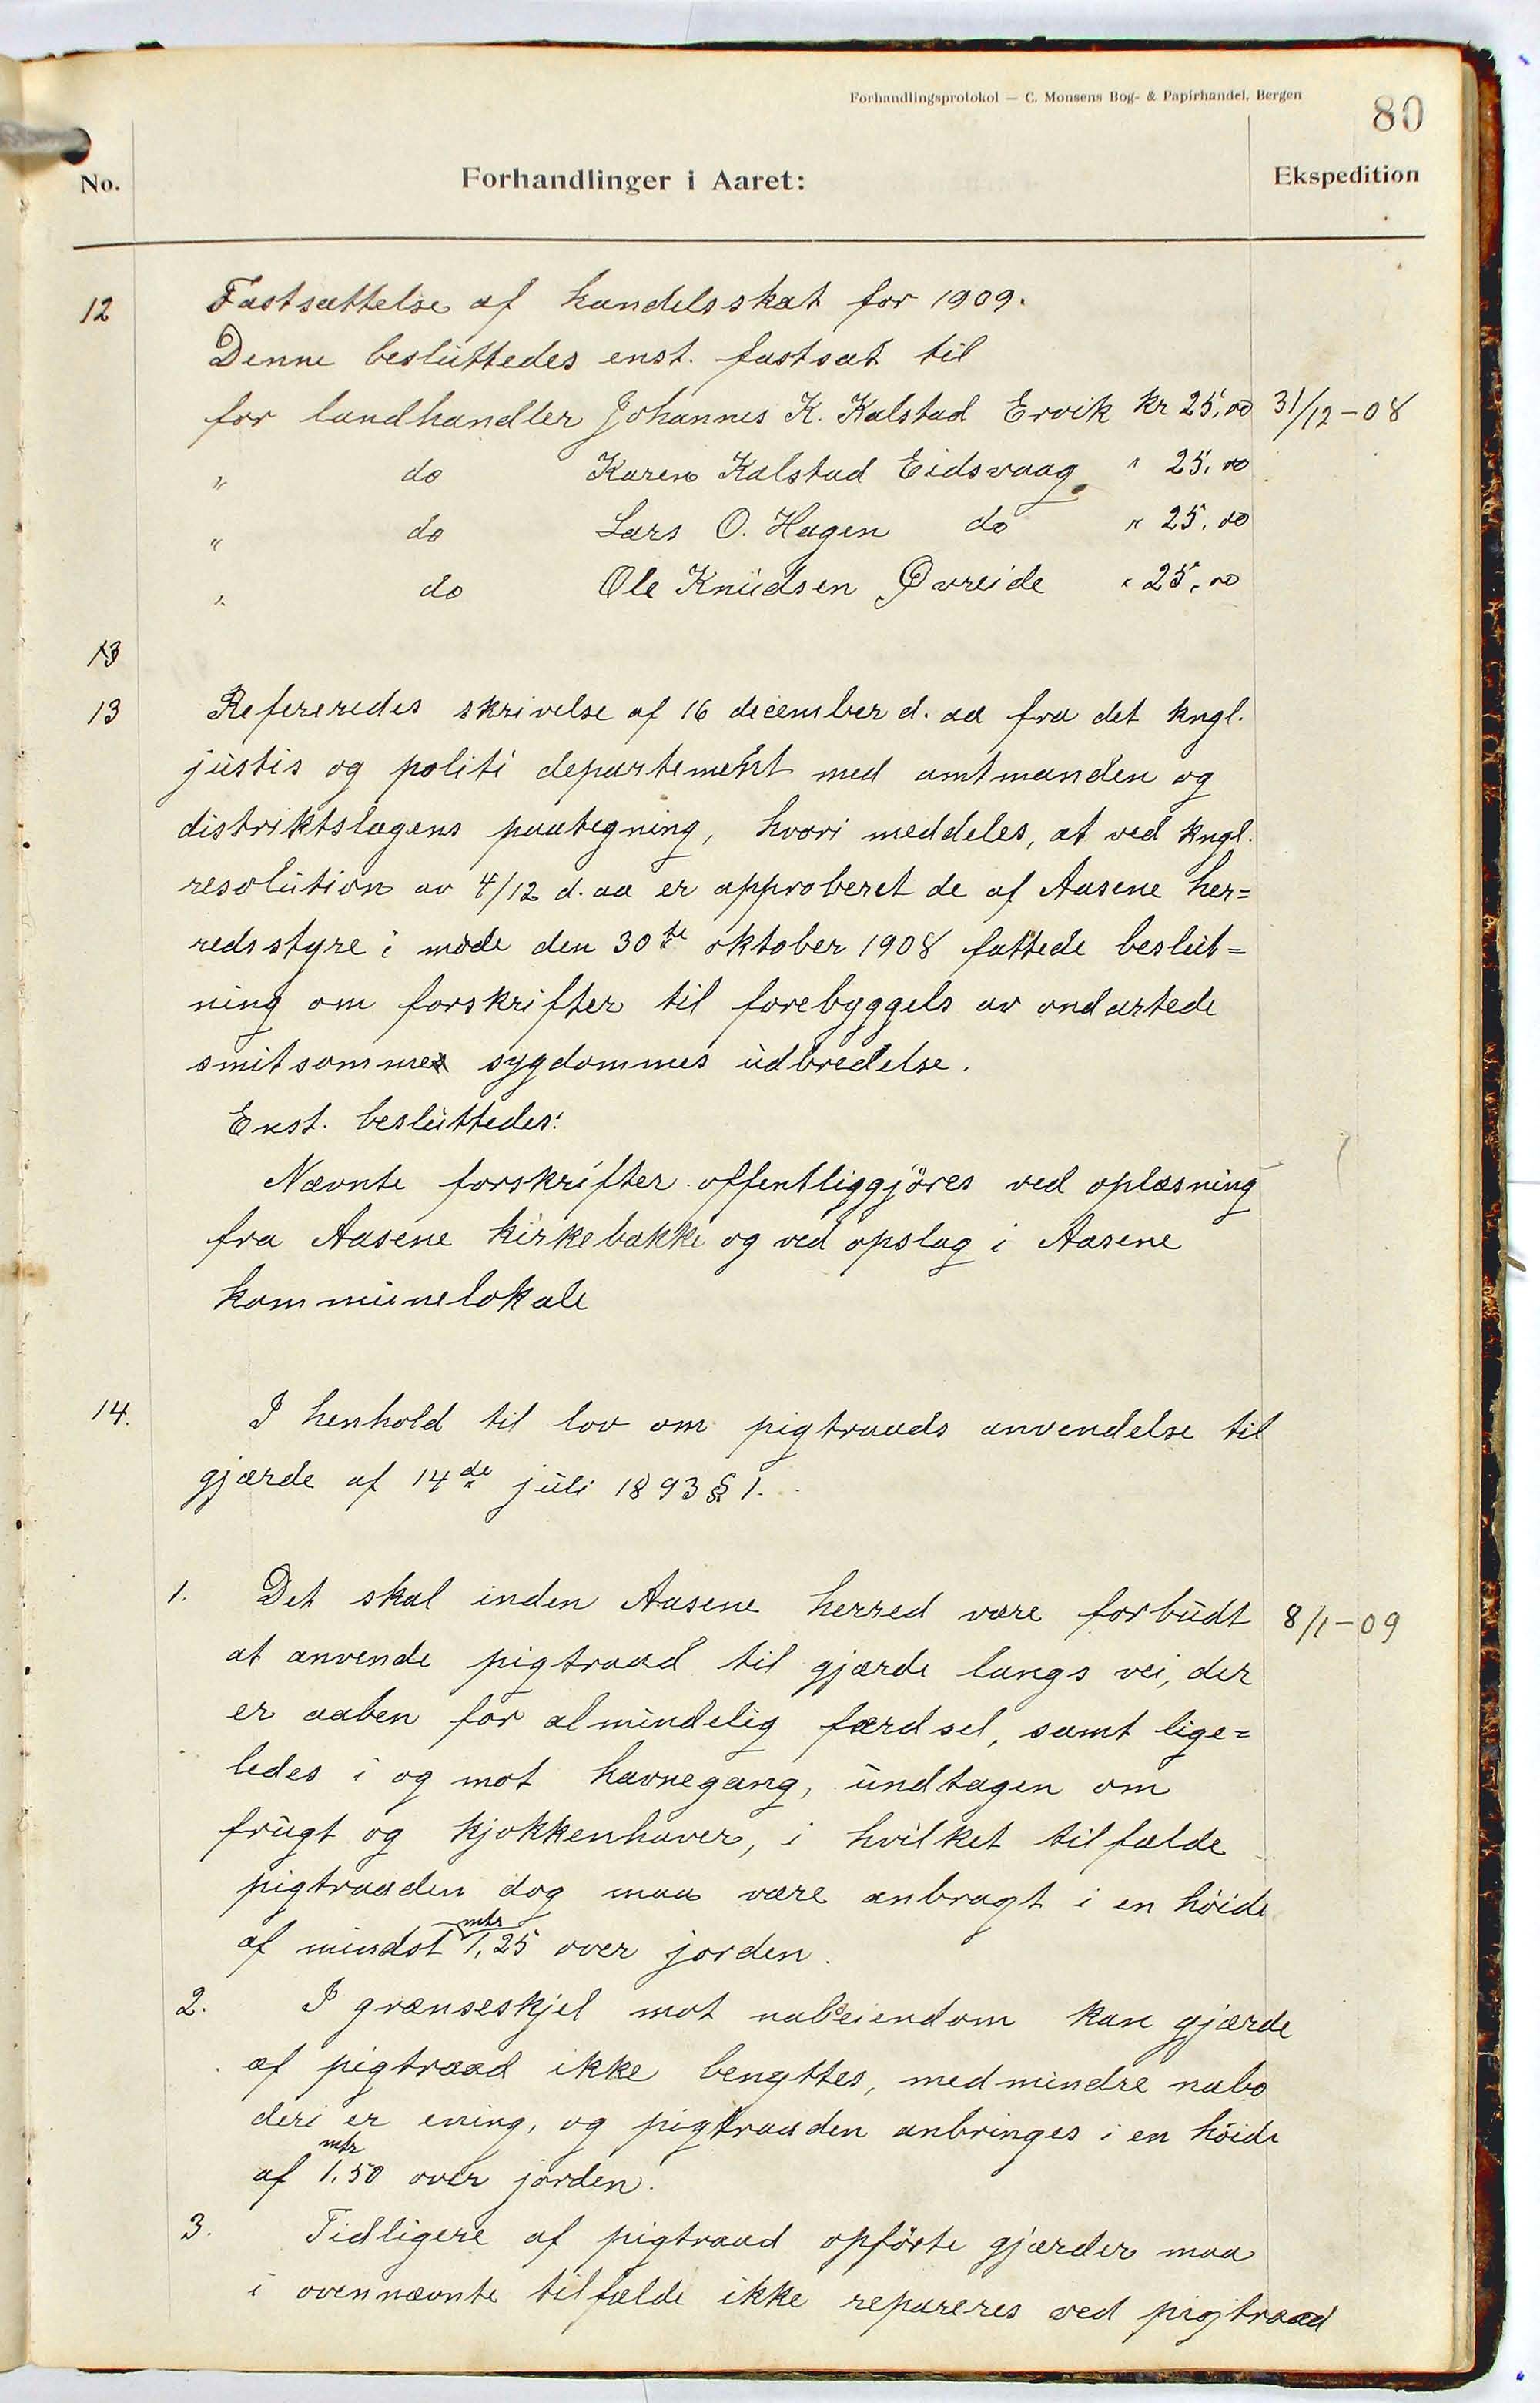 Forhandlingsprotokol — C. Monsens Bog- & Papirhandel, Bergen
80
No. Forhandlinger i Aaret: Ekspedition
12 Fastsættelse af handelsskat for 1909.
Denne besluttedes enst. fastsat til
for landhandler Johannes K. Kalstad Ervik kr 25,00 31/12-08
" do Karen Kalstad Eidsvaag " 25,00
" do Lars O. Hagen do " 25,00
" do Ole Knudsen Øvreide " 25,00
13
13 Refereredes skrivelse af 16 december d. aa fra det kngl.
justis og politi departement med amtmanden og
distriktslægens paategning, hvori meddeles, at ved kngl.
resolution av 4/12 d. aa er approberet de af Aasene her=
redsstyre i møde den 30te oktober 1908 fattede beslut=
ning om forskrifter til forebyggels av ondartede
smitsomme sygdommes udbredelse.
Enst. besluttedes:
Nævnte forskrifter offentliggjöres ved oplæsning
fra Aasene kirkebakke og ved opslag i Aasene
kommunelokale
14. I henhold til lov om pigtraads anvendelse til
gjærde af 14de juli 1893 § 1.
1. Det skal inden Aasene herred være forbudt 8/1-09
at anvende pigtraad til gjærde langs vei, der
er aaben for almindelig færdsel, samt lige=
ledes i og mot havnegang, undtagen om
frugt og kjøkkenhaver, i hvilket tilfælde
pigtraaden dog maa være anbragt i en höide
af mindst 1,25 mtr over jorden.
2. I grænseskjel mot naboeiendom kan gjærde
af pigtraad ikke benyttes, medmindre nabo
deri er ening, og pigtraaden anbringes i en höide
af 1,50 mtr over jorden.
3. Tidligere af pigtraad opförte gjærder maa
i ovennævnte tilfælde ikke repareres ved pigtraad